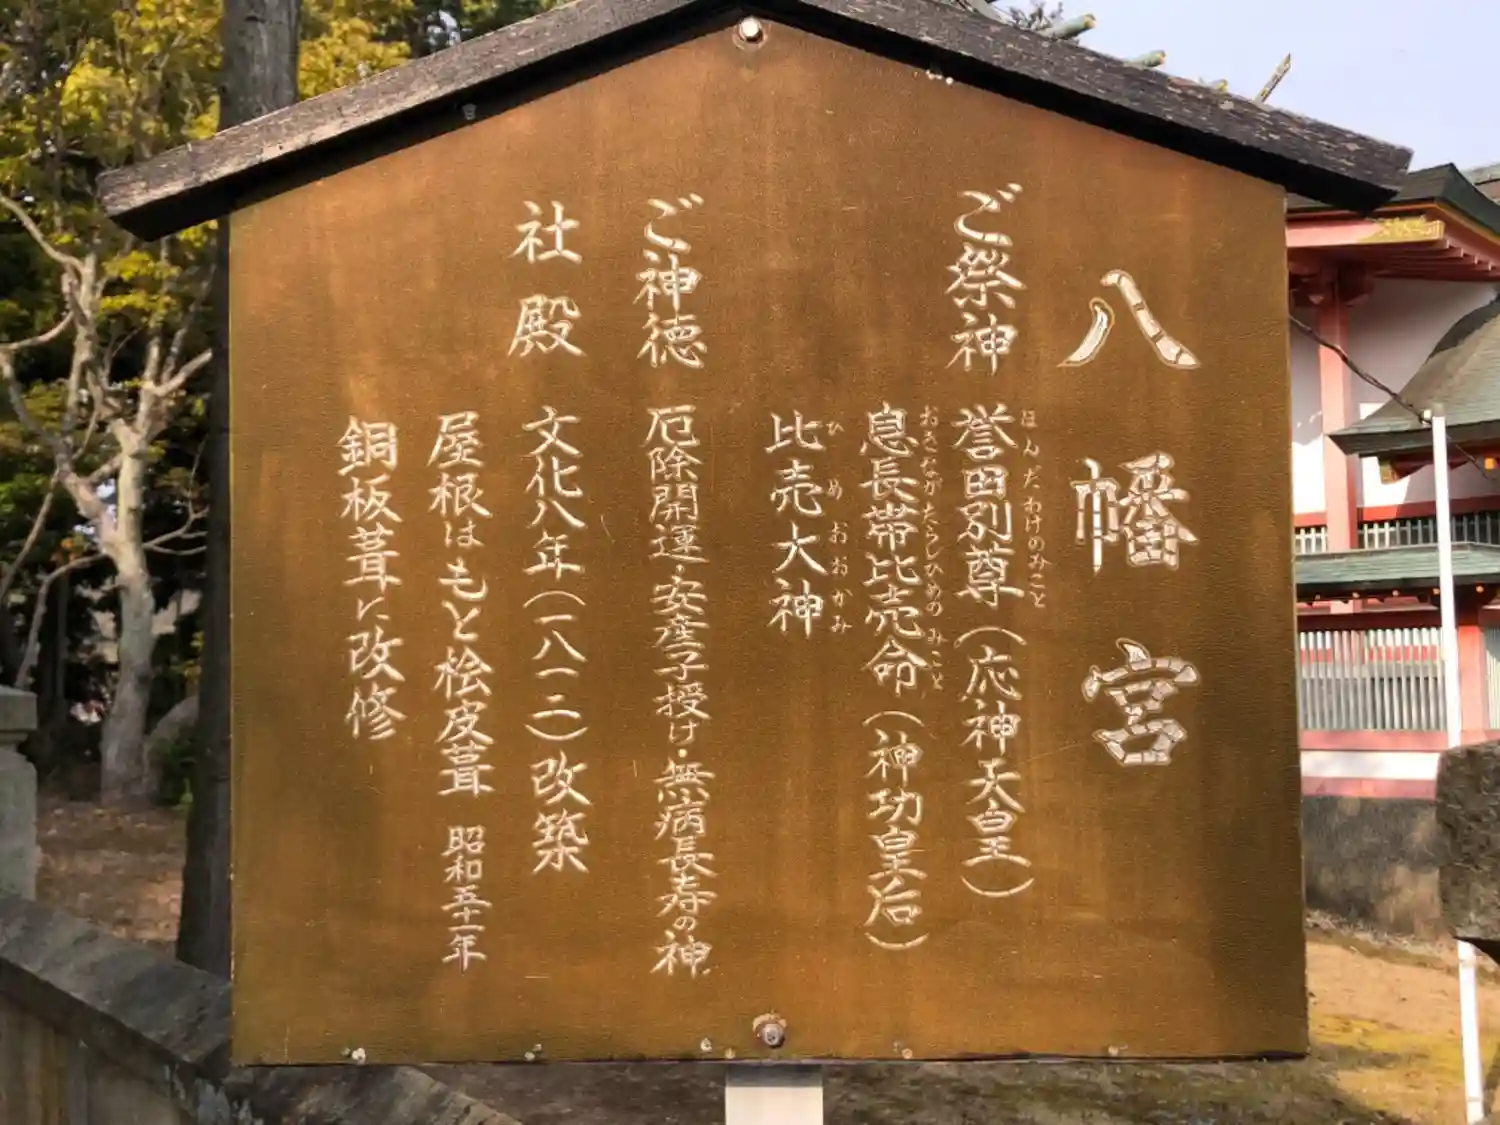 八幡宮
ご祭神 誉田別尊（応神天皇）
ほんだわけのみこと
息長帯比売命（神功皇后）
おきながたらしひめのみこと
比売大神
ひめおおかみ
ご神徳 厄除開運・安産子授け・無病長寿の神
社殿 文化八年（一八一二）改築
屋根はもと桧皮葺 昭和五十一年
銅板葺に改修